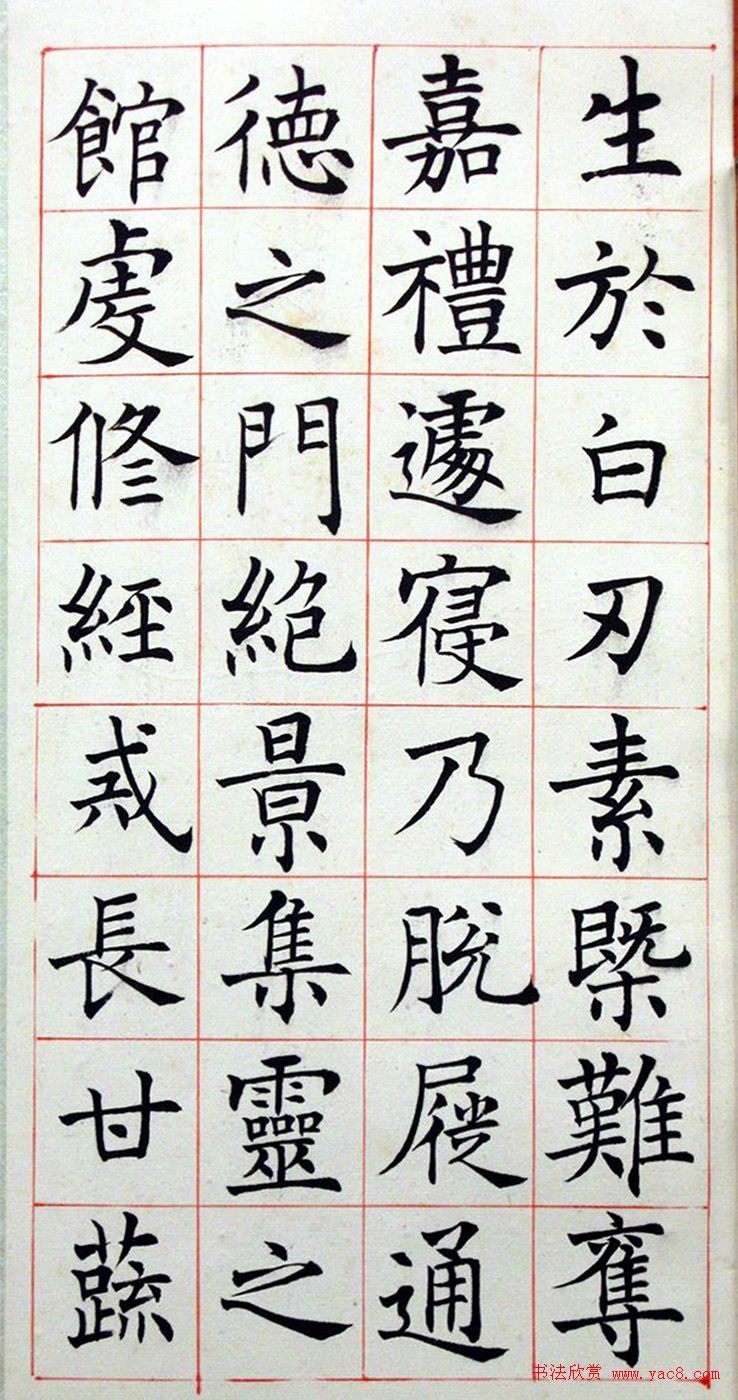 生於白刃素槩難奪
嘉禮遽寑乃脫屣通
德之門絕景集靈之
館虔修經戒長甘蔬
书法欣赏 www.yac8.com